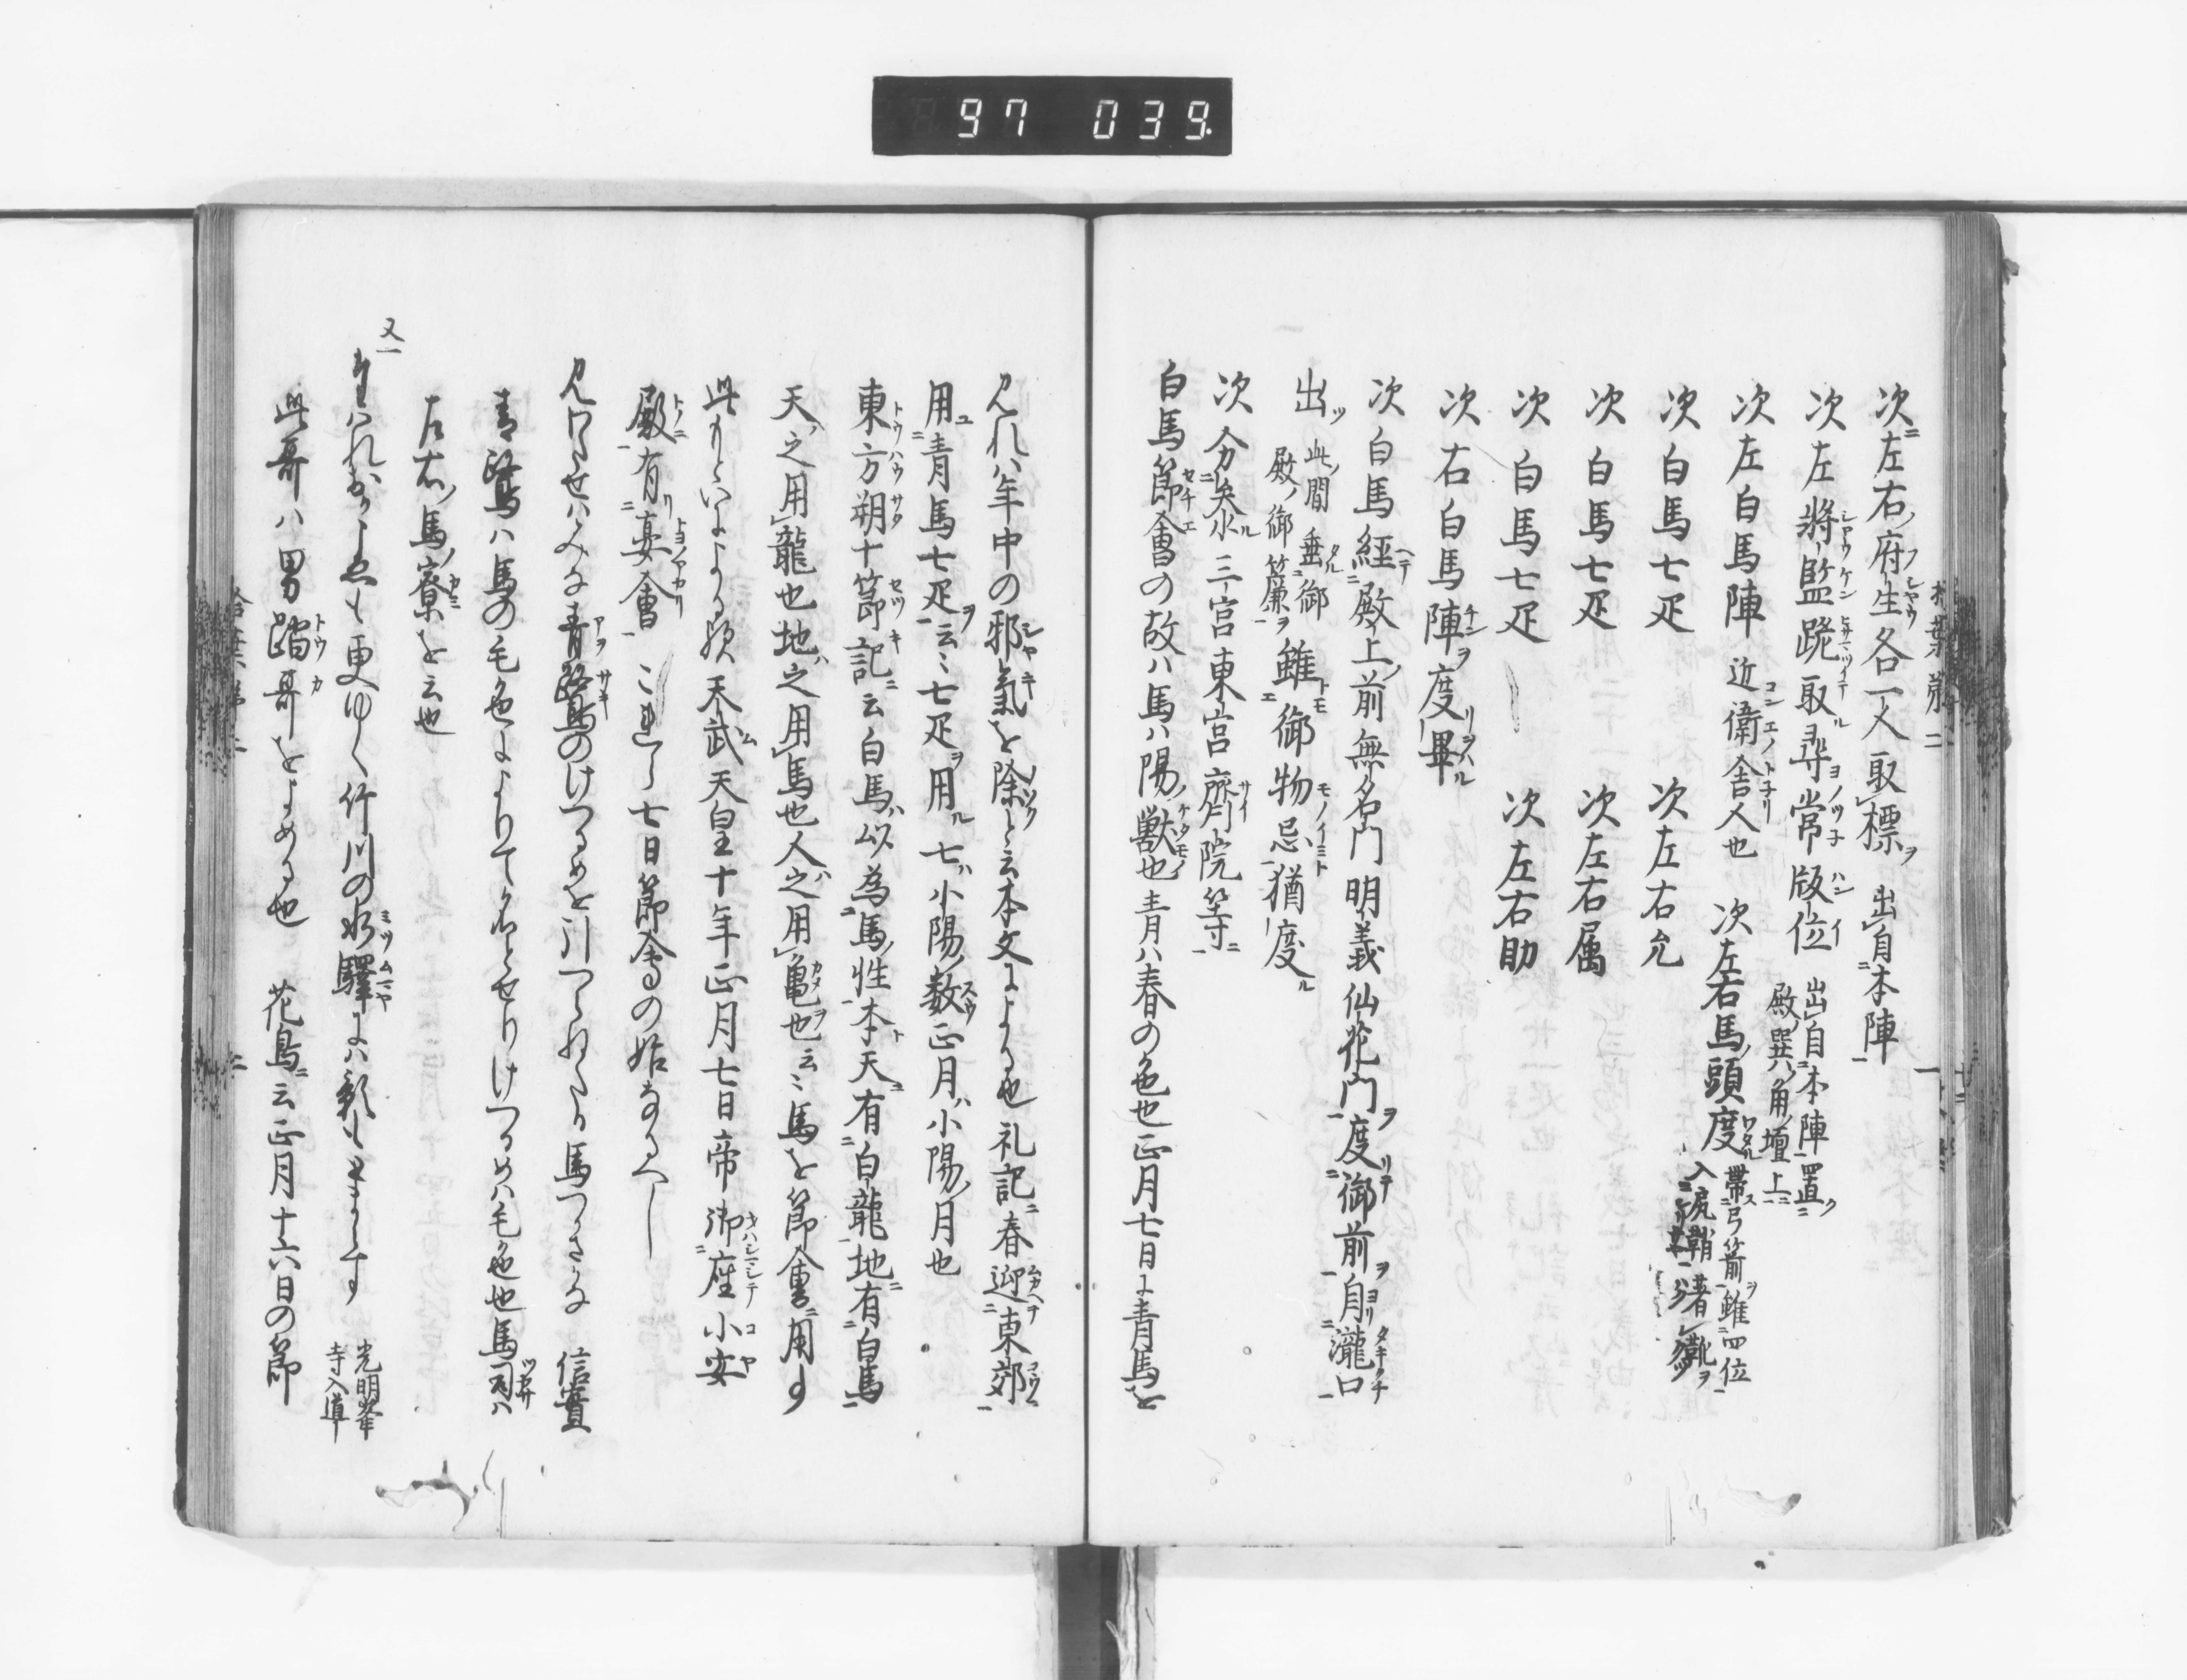 97 039
次左右府生各一人取標出自本陣
次左将監跪取尋常版位 出自本陣置
殿巽八角壇上
次左白馬陣 近衛舎人也 次左右馬頭度 帯弓箭雖四位
次白馬七疋 次左右允
次白馬七疋 次左右属
次白馬七疋 次左右助
次右白馬陣度畢
次白馬経殿上前無名門明義仙花門度御前自瀧口
出 此間垂御
殿御簾 雖御物忌猶度
次分 三宮東宮斎院等
白馬節會の故ハ馬ハ陽獣也青ハ春の色也正月七日に青馬を
見れハ年中の邪氣を除と云本文による也礼記云春迎東郊
用青馬七疋云〻七疋用ル七ハ小陽ノ数正月ハ小陽ノ月也
東方朔十節記云白馬ハ以為馬性本天有白龍地有白馬
天之用龍也地之用馬也人之用亀也云〻馬を節會ニ用事
此 による歟天武天皇十年正月七日帝御座小安
殿有宴會 これら七日節會の始なるへし
見わたせハみな青鷺のけつるめを引つらねたる馬つかさかな 信實
青鷺ハ馬の毛色によりて名とせりけつるめハ毛色也馬司ハ
左右ノ馬寮を云也
又一
更ゆく竹川の水驛にハ影もとまらす 光明峯
寺入道
此哥ハ男踏哥をよめる也 花鳥ニ云正月十六日の節